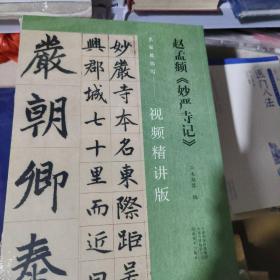 赵孟頫《妙严寺记》
视频精讲版
妙嚴寺本名東際距吴
興郡城七十里而近曰
嚴朝卿泰